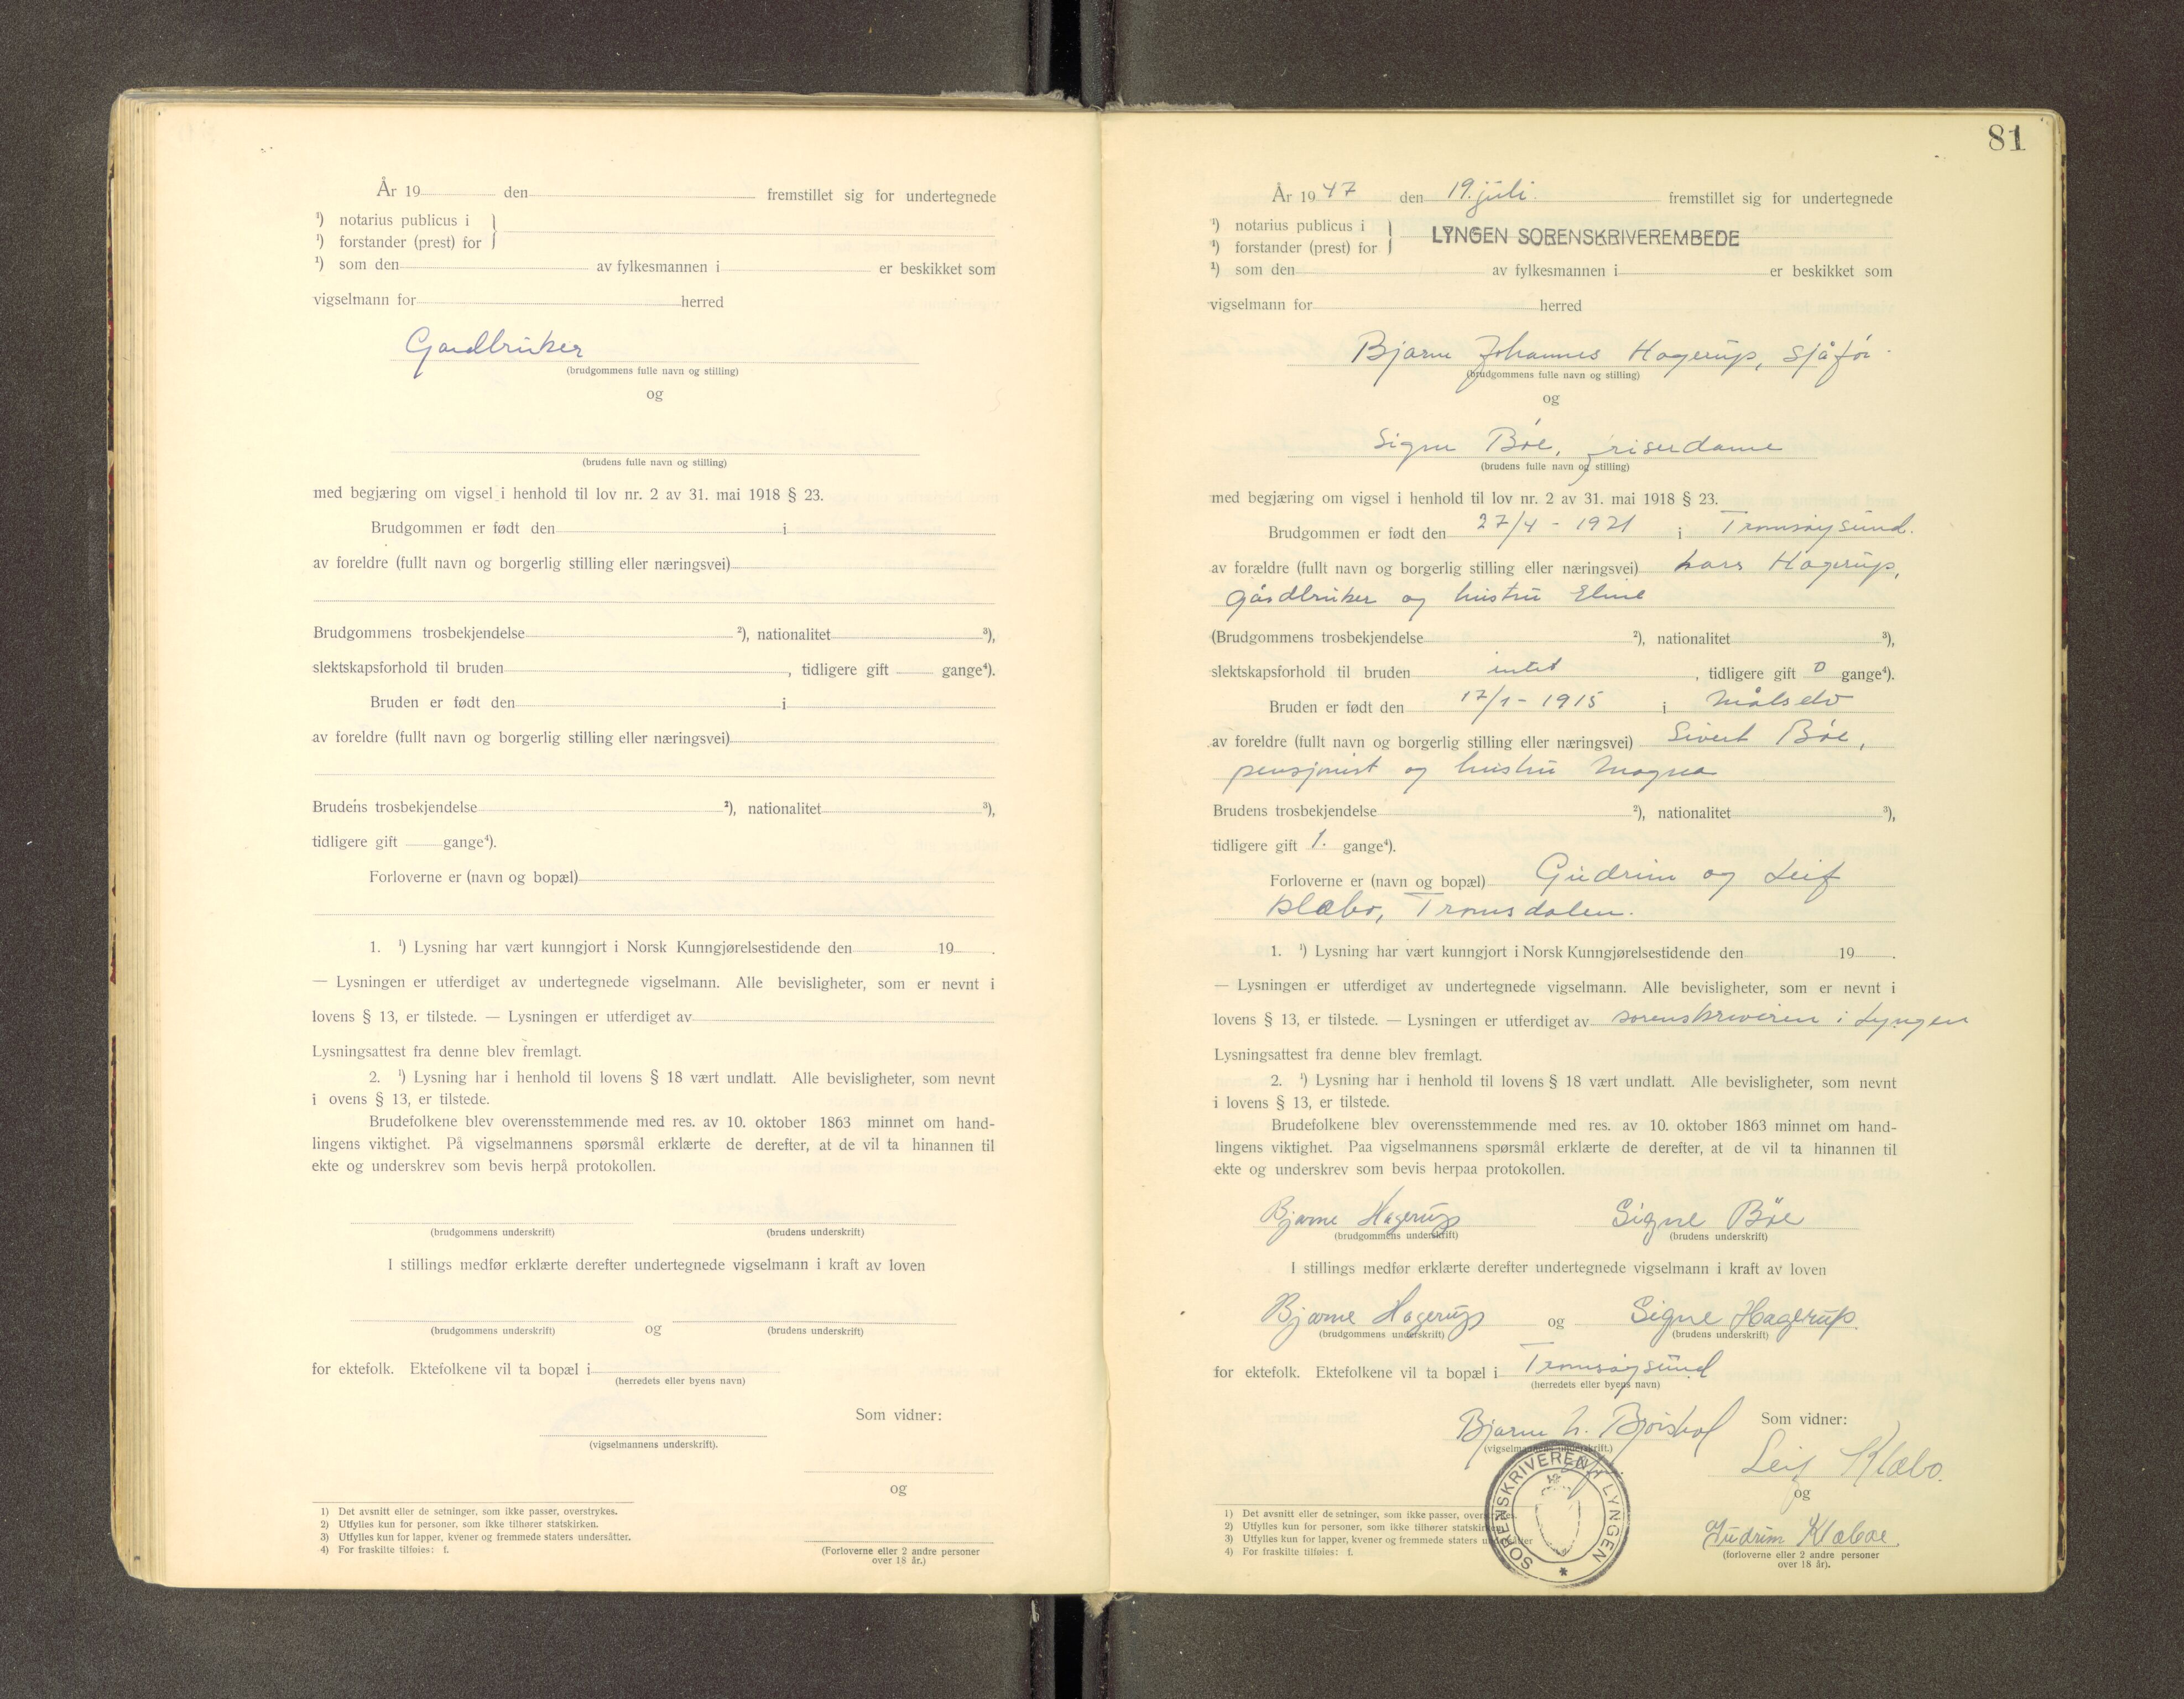 År 19 den fremstillet sig for undertegnede
¹) notarius publicus i
¹) forstander (prest) for
¹) som den av fylkesmannen i er beskikket som
vigselmann for herred
Gardbruker
(brudgommens fulle navn og stilling)
og
(brudens fulle navn og stilling)
med begjæring om vigsel i henhold til lov nr. 2 av 31. mai 1918 § 23.
Brudgommen er født den i
av foreldre (fullt navn og borgerlig stilling eller næringsvei)
Brudgommens trosbekjendelse ²), nationalitet ³),
slektskapsforhold til bruden , tidligere gift gange⁴).
Bruden er født den i
av foreldre (fullt navn og borgerlig stilling eller næringsvei)
Brudens trosbekjendelse ²), nationalitet ³),
tidligere gift gange⁴).
Forloverne er (navn og bopæl)
1. ¹) Lysning har vært kunngjort i Norsk Kunngjørelsestidende den 19 .
— Lysningen er utferdiget av undertegnede vigselmann. Alle bevisligheter, som er nevnt i
lovens § 13, er tilstede. — Lysningen er utferdiget av
Lysningsattest fra denne blev fremlagt.
2. ¹) Lysning har i henhold til lovens § 18 vært undlatt. Alle bevisligheter, som nevnt
i ovens § 13, er tilstede.
Brudefolkene blev overensstemmende med res. av 10. oktober 1863 minnet om hand-
lingens viktighet. På vigselmannens spørsmål erklærte de derefter, at de vil ta hinannen til
ekte og underskrev som bevis herpå protokollen.
(brudgommens underskrift) (brudens underskrift)
I stillings medfør erklærte derefter undertegnede vigselmann i kraft av loven
og
(brudgommens underskrift) (brudens underskrift)
for ektefolk. Ektefolkene vil ta bopæl i
(herredets eller byens navn)
Som vidner:
(vigselmannens underskrift).
og
1) Det avsnitt eller de setninger, som ikke passer, overstrykes.
2) Utfylles kun for personer, som ikke tilhører statskirken.
3) Utfylles kun for lapper, kvener og fremmede staters undersåtter.
4) For fraskilte tilføies: f.
(Forloverne eller 2 andre personer
over 18 år.)
81
År 1947 den 19. juli. fremstillet sig for undertegnede
¹) notarius publicus i
LYNGEN SORENSKRIVEREMBEDE
¹) forstander (prest) for
¹) som den av fylkesmannen i er beskikket som
vigselmann for herred
Bjarne Johannes Hagerup, sjåfør.
(brudgommens fulle navn og stilling)
og
Signe Bøe, friserdame
(brudens fulle navn og stilling)
med begjæring om vigsel i henhold til lov nr. 2 av 31. mai 1918 § 23.
Brudgommen er født den 27/4 - 1921 i Tromsøysund.
av forældre (fullt navn og borgerlig stilling eller næringsvei) Lars Hagerup,
gårdbruker og hustru Eline
(Brudgommens trosbekjendelse ²), nationalitet ³),
slektskapsforhold til bruden intet , tidligere gift 0 gange⁴).
Bruden er født den 17/1 - 1915 i Målselv
av foreldre (fullt navn og borgerlig stilling eller næringsvei) Sivert Bøe,
pensjonist og hustru Magna
Brudens trosbekjendelse ²), nationalitet ³),
tidligere gift 1. gange⁴).
Forloverne er (navn og bopæl) Gudrun og Leif
Klæbo, Tromsdalen.
1. ¹) Lysning har vært kunngjort i Norsk Kunngjørelsestidende den 19 .
— Lysningen er utferdiget av undertegnede vigselmann. Alle bevisligheter, som er nevnt i
lovens § 13, er tilstede. — Lysningen er utferdiget av sorenskriveren i Lyngen
Lysningsattest fra denne blev fremlagt.
2. ¹) Lysning har i henhold til lovens § 18 vært undlatt. Alle bevisligheter, som nevnt
i lovens § 13, er tilstede.
Brudefolkene blev overensstemmende med res. av 10. oktober 1863 minnet om hand-
lingens viktighet. Paa vigselmannens spørsmål erklærte de derefter, at de vil ta hinannen til
ekte og underskrev som bevis herpaa protokollen.
Bjarne Hagerup Signe Böe
(brudgommens underskrift) (brudens underskrift)
I stillings medfør erklærte derefter undertegnede vigselmann i kraft av loven
Bjarne Hagerup og Signe Hagerup.
(brudgommens underskrift) (brudens underskrift)
for ektefolk. Ektefolkene vil ta bopæl i Tromsøysund
(herredets eller byens navn)
Bjarne Som vidner:
(vigselmannens underskrift.)
Leif Klæbo.
og
SORENSKRIVEREN I LYNGEN
1) Det avsnitt eller de setninger, som ikke passer, overstrykes.
2) Utfylles kun for personer, som ikke tilhører statskirken
3) Utfylles kun for lapper, kvener og fremmede staters undersåtter
4) For fraskilte tilføies: f.
Gudrun Klæboe.
(forloverne eller 2 andre personer
over 18 år).